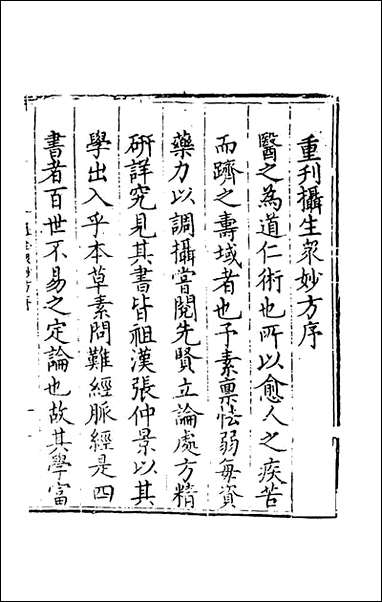 重刊攝生衆妙方序
醫之為道仁術也所以愈人之疾苦
而躋之壽域者也予素禀怯弱每資
藥力以調攝嘗閱先賢立論處方精
研詳究見其書皆祖漢張仲景以其
學出入乎本草素問難經脈經是四
書者百世不易之定論也故其學富